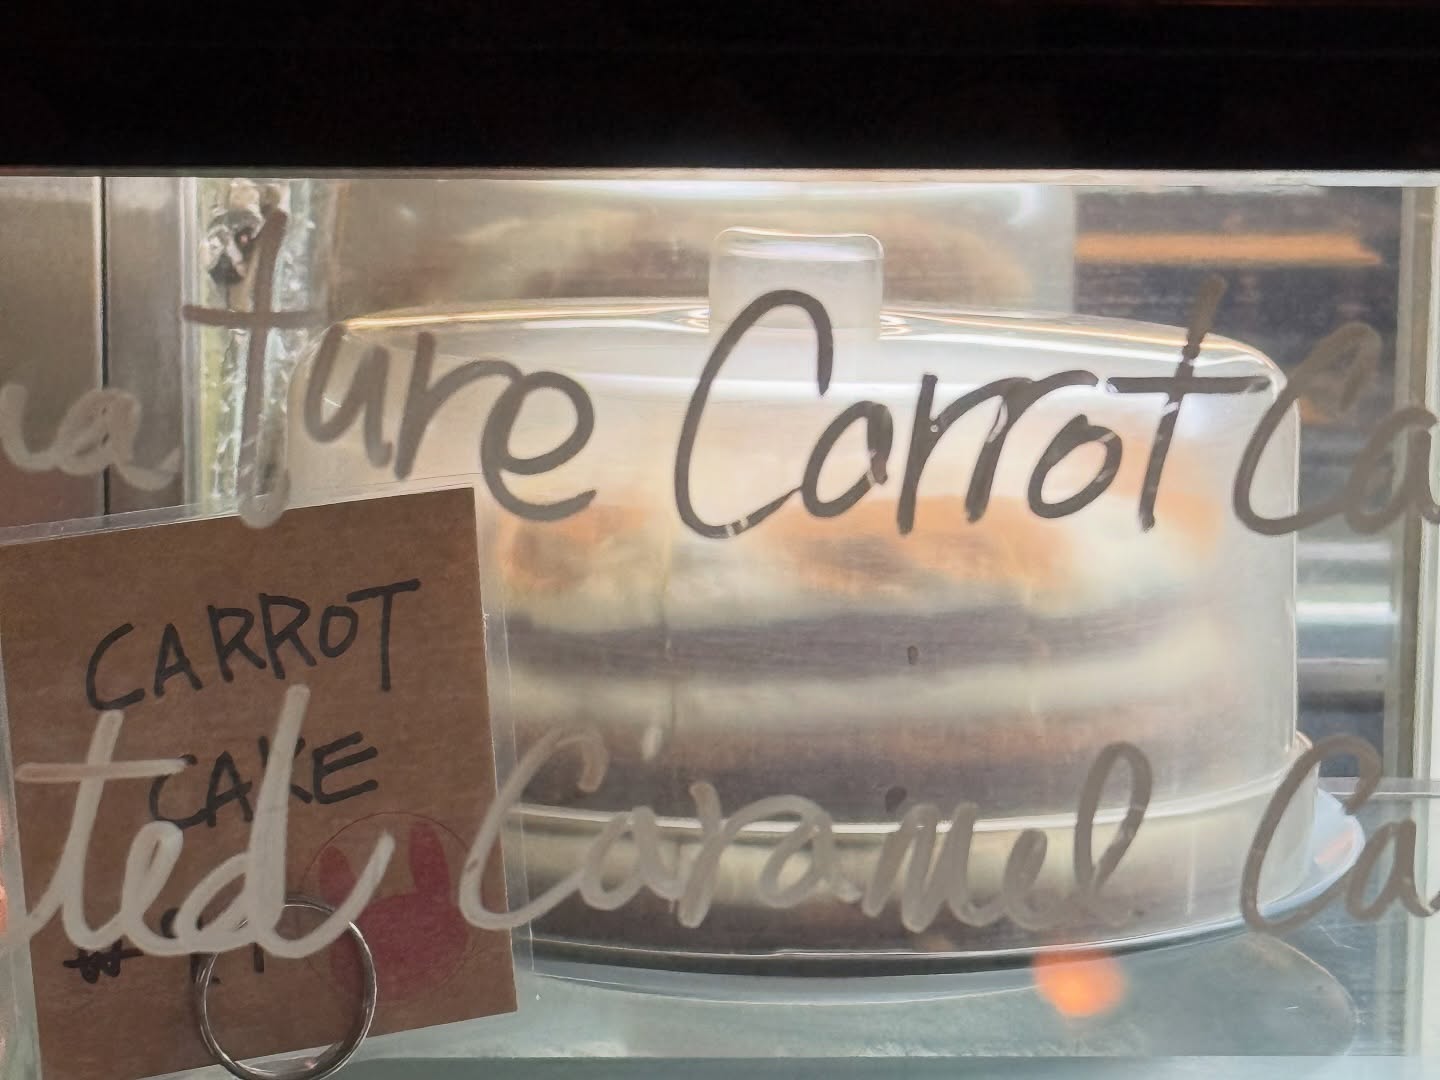 ature Carrot Ca
CARROT
CAKE
ted Caramel Ca
₩